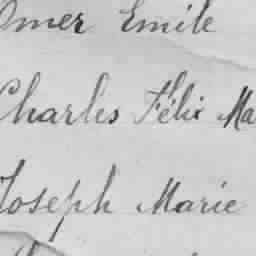 Omer Emile
Charles Félix Ma
Joseph Marie